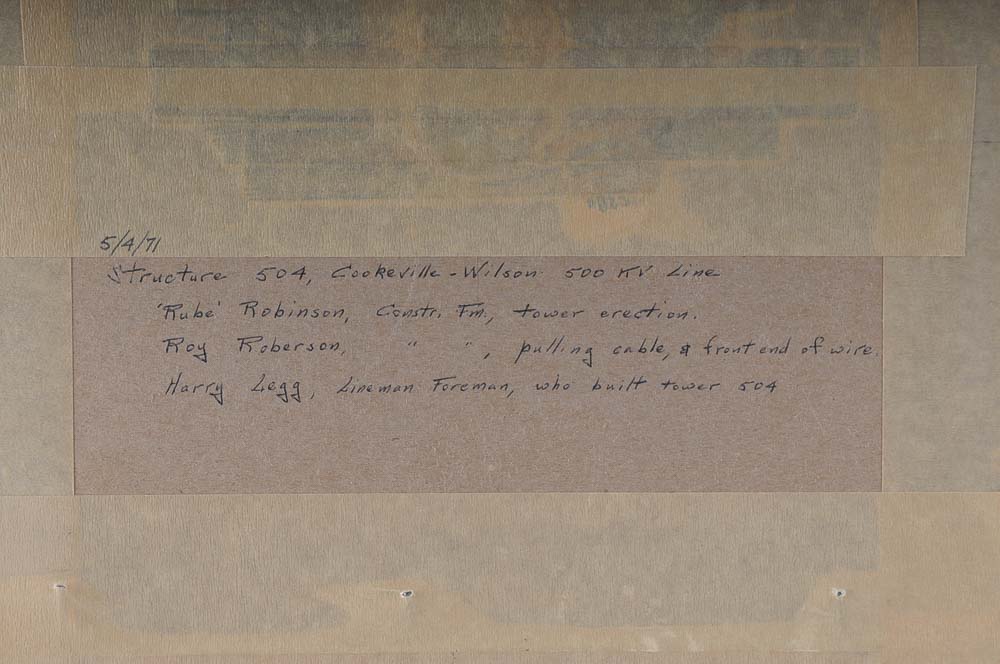 5/4/71
Structure 504, Cookeville - Wilson 500 KV Line
'Rube' Robinson, Constr. Fm., tower erection.
Roy Roberson, " ", pulling cable, & front end of wire.
Harry Legg, Lineman Foreman, who built tower 504